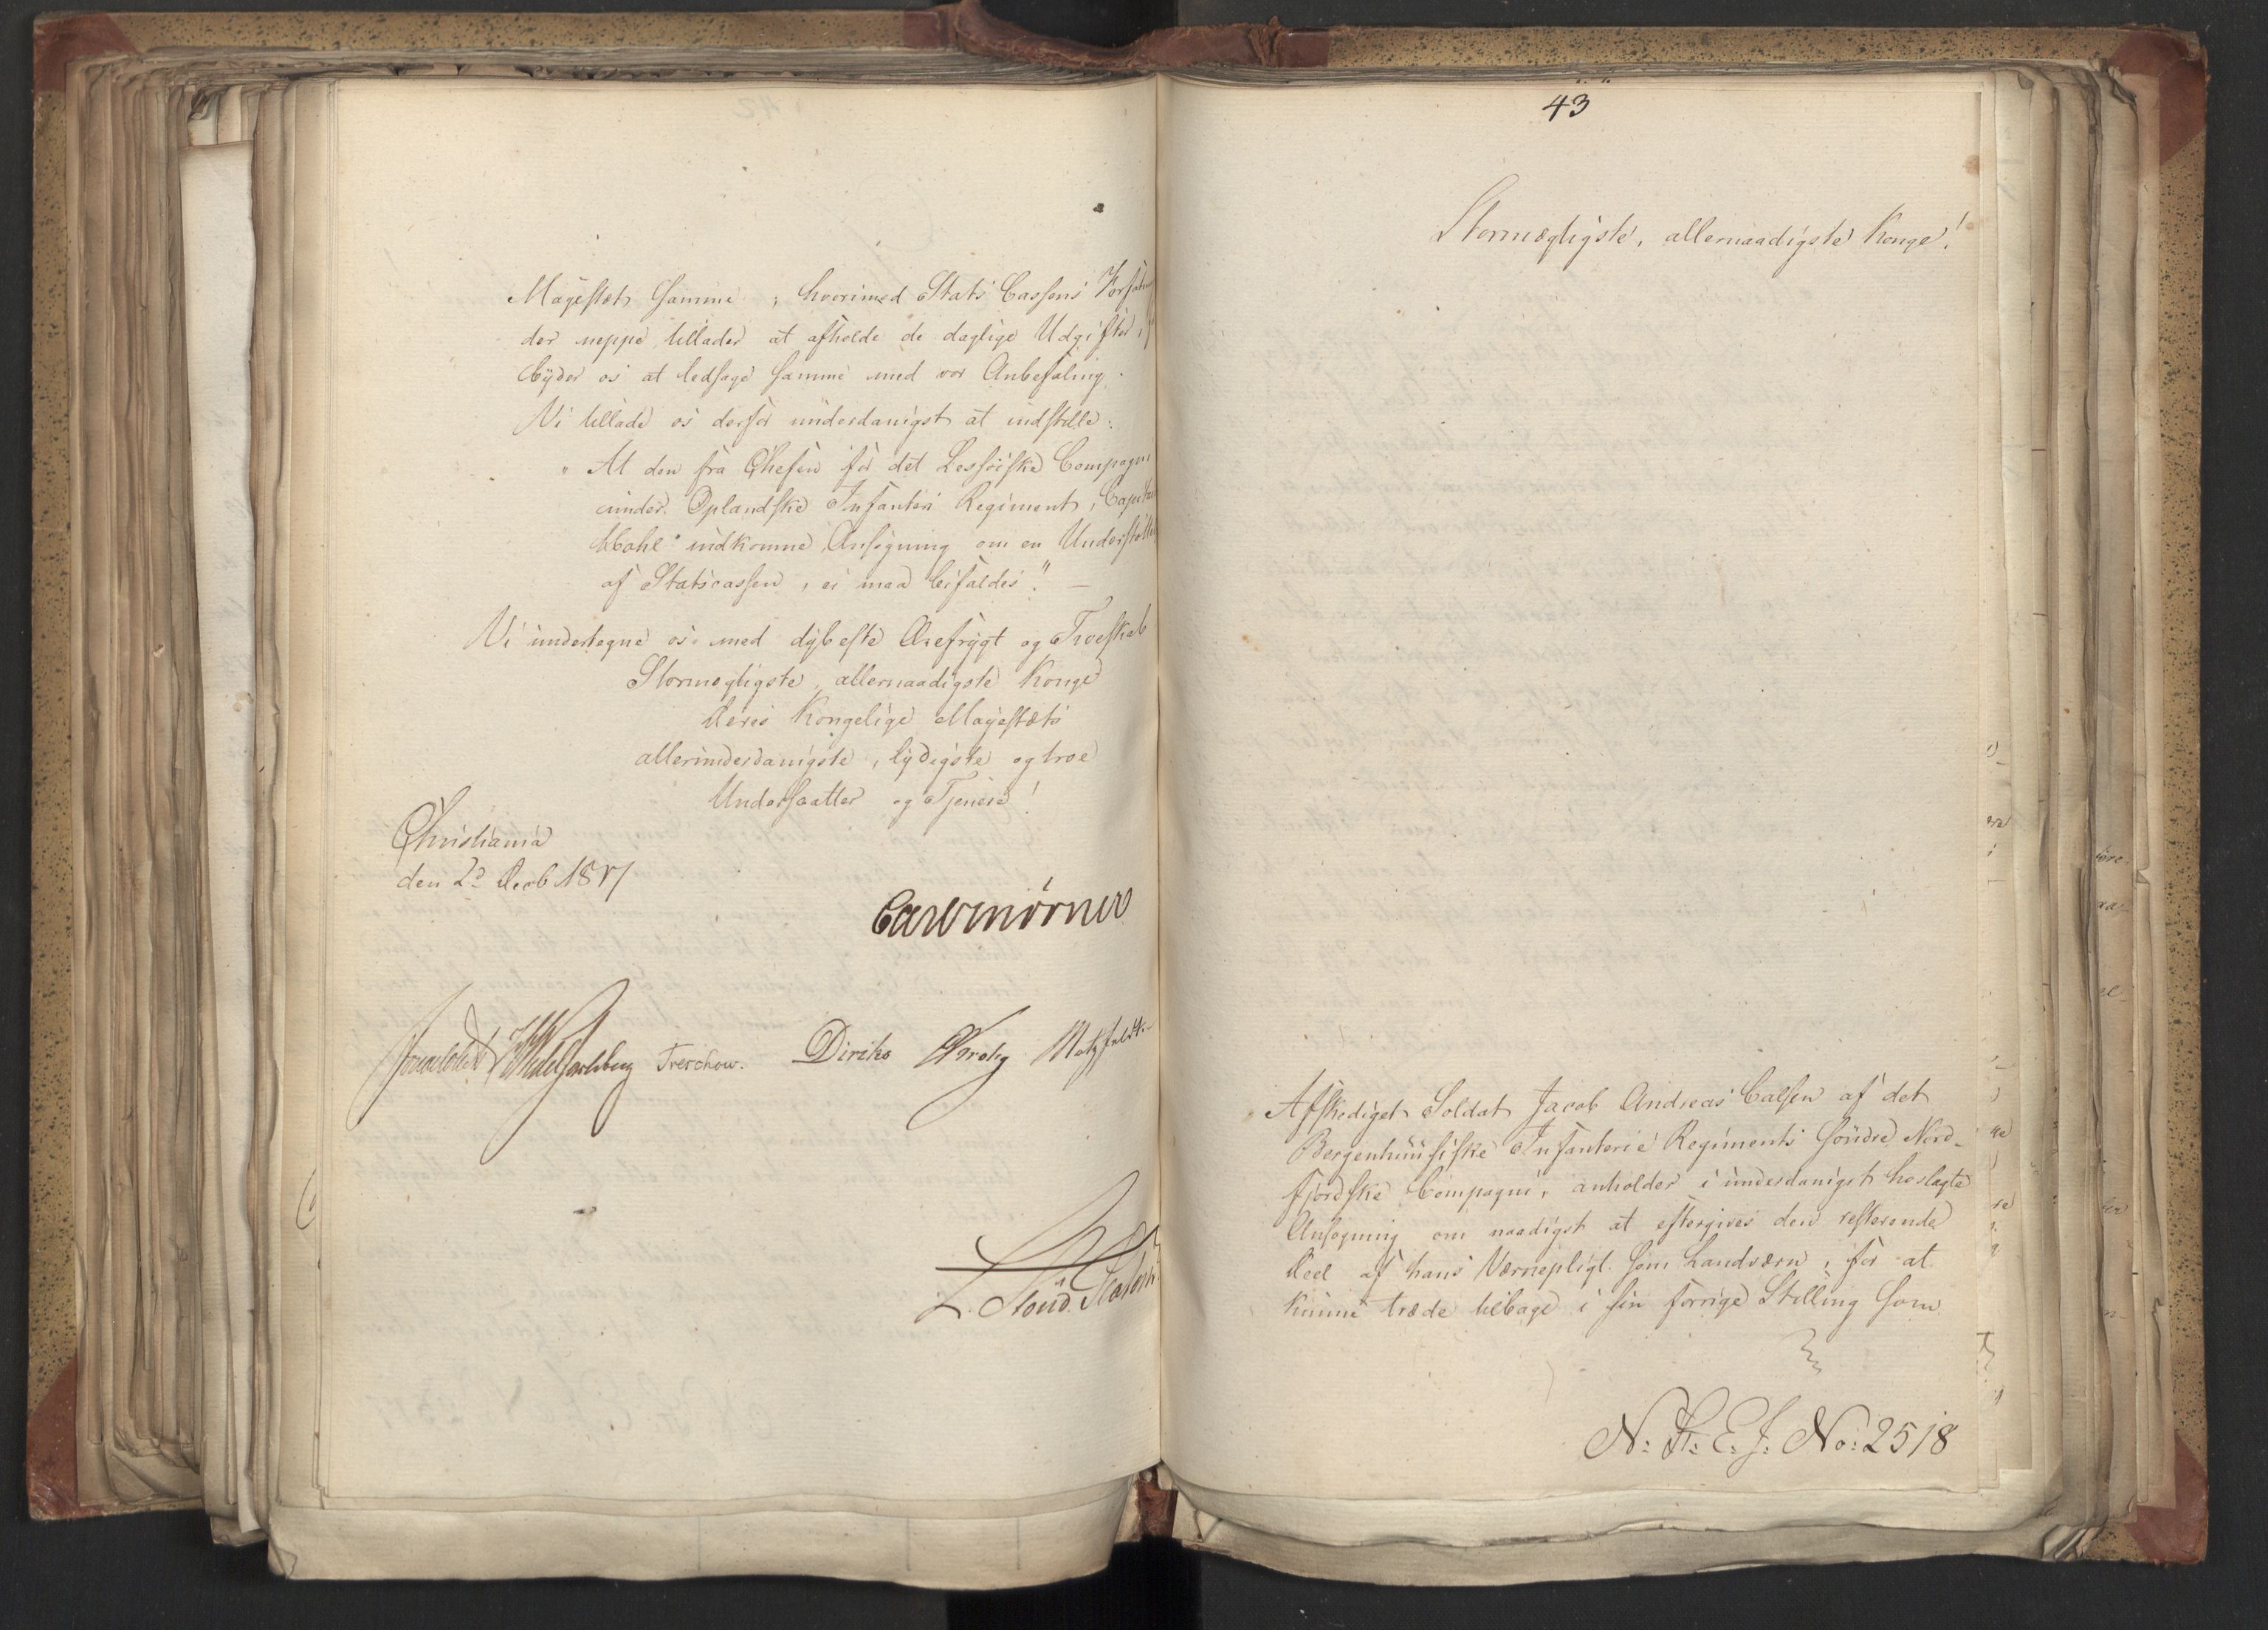 Majestæt samme; hvorimod Stats Cassens Forfatning
der neppe tillader at afholde de daglige Udgifter,
byder os at ledsage samme med vor Anbefaling.
Vi tillade os derfor underdanigst at indstille:
"At den fra Chefen for det Lessöiske Compagni
under Oplandske Infanteri Regiment, Capitain
indkomne Ansøgning om en Understøttelse
af Statscassen, ei maa bifaldes." —
Vi undertegne os med dybeste Ærefrygt og Troeskab
Stormægtigste, allernaadigste Konge
Deres Kongelige Majestæts
allerunderdanigste, lydigste og troe
Undersaatter og Tjenere!
Christiania
den 2d Decb 1817
Carl Mörner
Sommerhielm HWedel Jarlsberg Treschow. Diriks Krohg Motzfeldt
L. Stoud. Platou
43
Stormægtigste, allernaadigste Konge!
Afskediget Soldat Jacob Andreas Calsen af det
Bergenhuusiske Infanterie Regiments søndre Nord-
fjordske Compagni, anholder i underdanigst hoslagte
Ansøgning om naadigst at eftergives den resterende
Deel af hans Værnepligt som Landværn, for at
kunne træde tilbage i sin forrige Stilling som
N: St: E: J: No: 2518